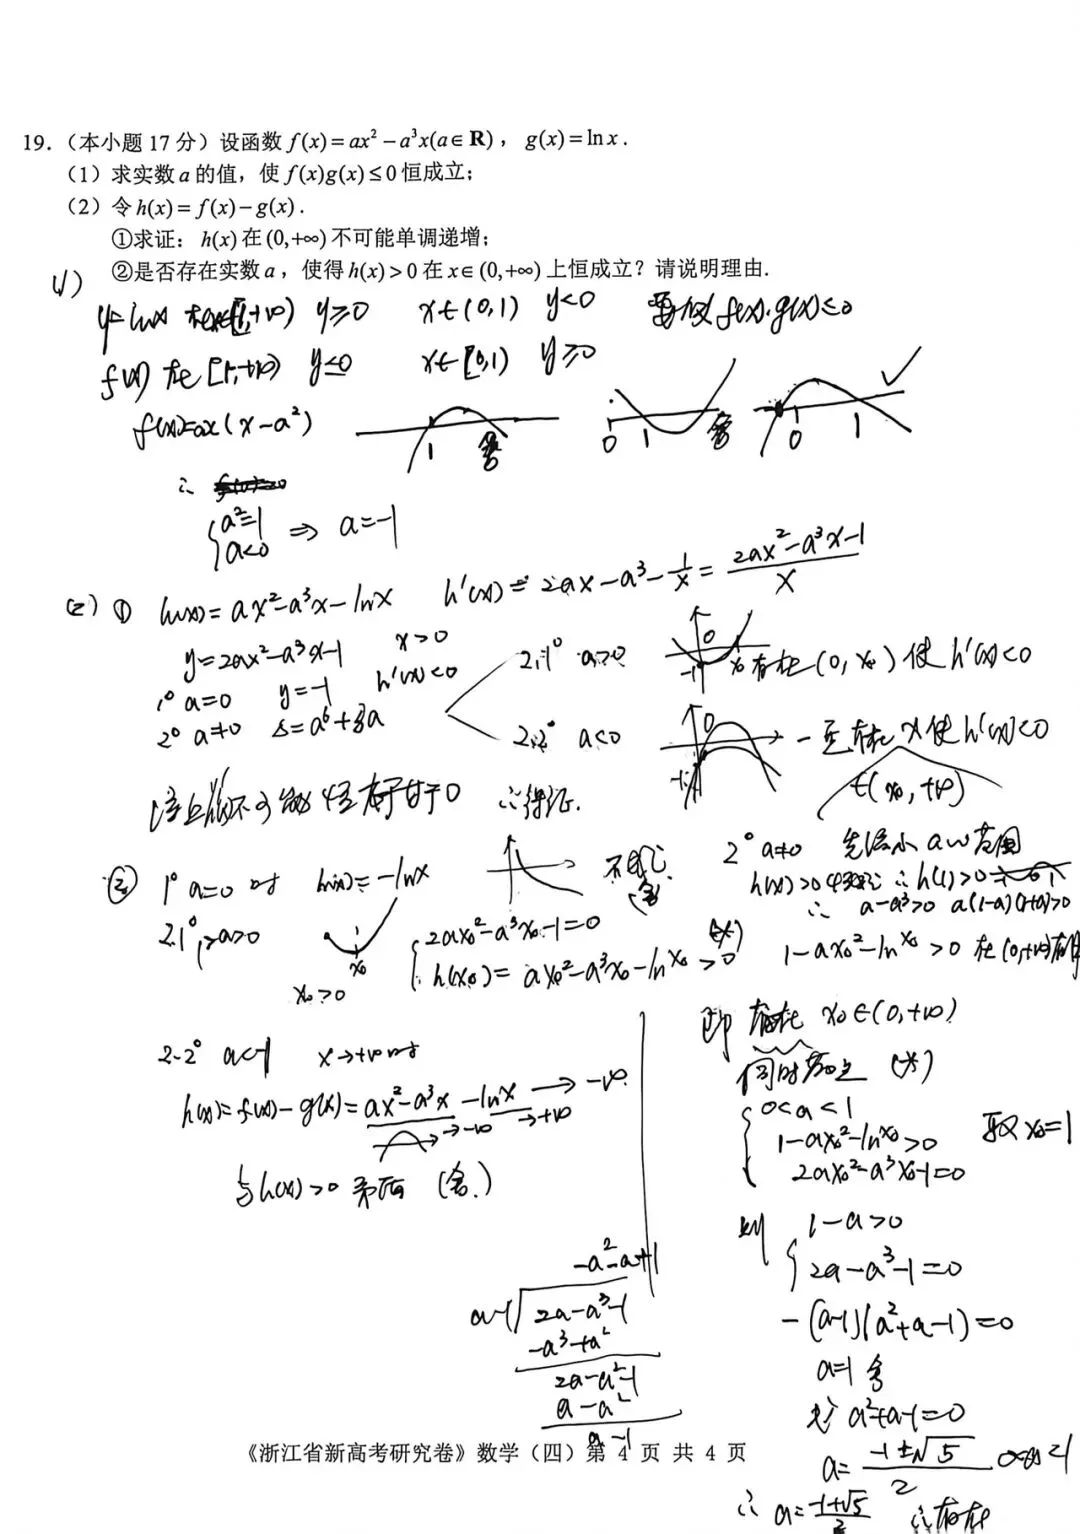 19.（本小题 17 分）设函数 f(x)=ax²-a³x(a∈R)，g(x)=ln x.
（1）求实数 a 的值，使 f(x)g(x)≤0 恒成立；
（2）令 h(x)=f(x)-g(x).
①求证：h(x) 在 (0,+∞) 不可能单调递增；
②是否存在实数 a，使得 h(x)>0 在 x∈(0,+∞) 上恒成立？请说明理由.
(1)
y=lnx 在x∈[1,+∞) y≥0 x∈(0,1) y<0 要使f(x)·g(x)≤0
f(x) 在[1,+∞) y≤0 x∈[0,1) y≥0
f(x)=ax(x-a²) 1 舍 0 1 舍 0 1 ✓
∴
{a²=1
a<0 ⇒ a=-1
(2) ① h(x)=ax²-a³x-lnx h'(x)=2ax-a³-1/x=(2ax²-a³x-1)/x
y=2ax²-a³x-1 x>0
1° a=0 y=-1 h'(x)<0
2° a≠0 Δ=a⁶+8a
2.1° a>0 0 -1 x₀ 存在(0,x₀)使h'(x)<0
2.2° a<0 0 -1 一定存在x使h'(x)<0
∈(x₀,+∞)
综上 h'(x)不可能恒大于等于0 ∴得证.
② 1° a=0 时 h(x)=-lnx 不成立 (舍
2.1° a>0 x₀ x₀>0
{2ax₀²-a³x₀-1=0
h(x₀)=ax₀²-a³x₀-lnx₀>0 (*)
2.2° a<-1 x→+∞时
h(x)=f(x)-g(x)=ax²-a³x-lnx→-∞
→-∞ →+∞
与h(x)>0 矛盾 (舍.)
2° a≠0 先缩小a的范围
h(x)>0恒成立 ∴h(1)>0
∴ a-a³>0 a(1-a)(1+a)>0
1-ax₀²-lnx₀>0 在(0,+∞)有解
即 存在 x₀∈(0,+∞)
同时满足 (*)
{0<a<1
1-ax₀²-lnx₀>0 取x₀=1
2ax₀²-a³x₀-1=0
则 {1-a>0
2a-a³-1=0
-(a-1)(a²+a-1)=0
a=1 舍
对 a²+a-1=0
a=(-1±√5)/2 0<a<1
∴ a=(-1+√5)/2 ∴存在
-a²-a+1
a-1 2a-a³-1
-a³+a²
2a-a²-1
a-a²
a-1
《浙江省新高考研究卷》数学（四）第 4 页 共 4 页